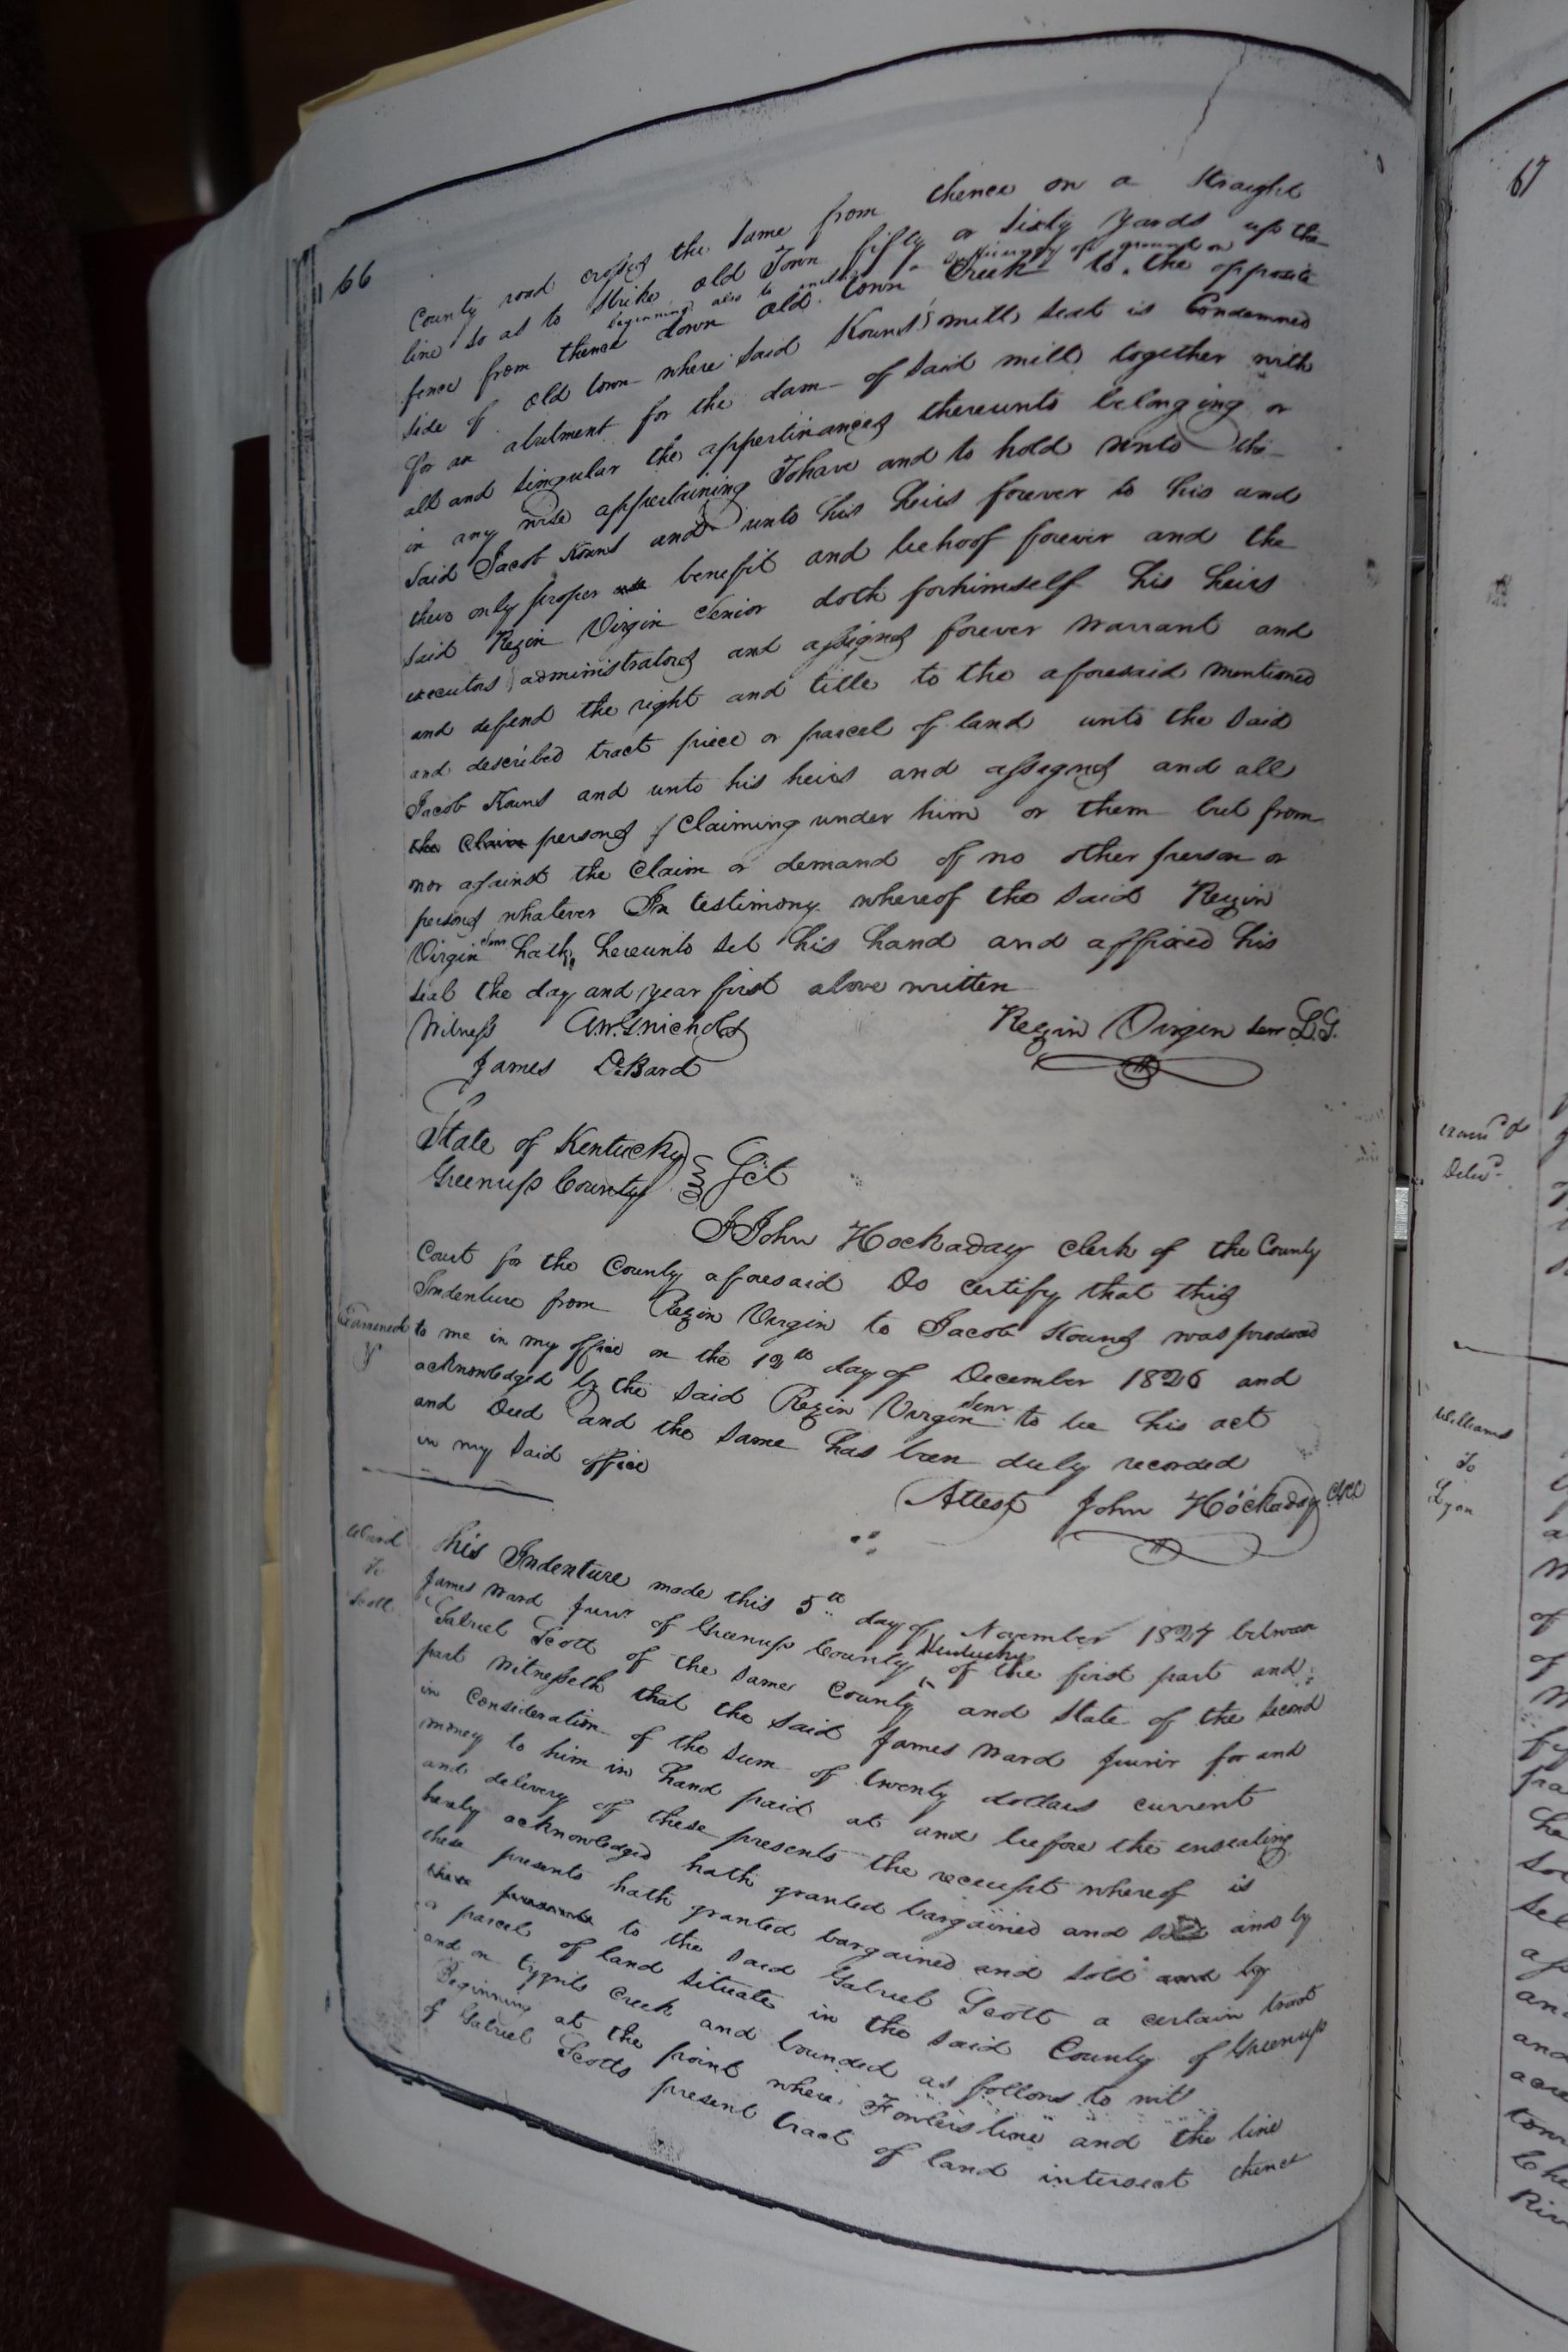 66
County road crosses the same from thence on a straight
line so as to strike old Town fifty or sixty yards up the
beginning also to sufficiency of ground on
fence from thence down old town Creek to the opposite
side of old town where said Kouns' mill seat is Condemned
for an abutment for the dam of said mill together with
all and singular the appertinances thereunto belonging or
in any wise appertaining To have and to hold unto the
said Jacob Kouns and unto his heirs forever to his and
theis only proper use benefit and behoof forever and the
said Rezin Virgin Senior doth for himself his heirs
executors administrators and assigns forever warrant and
and defend the right and title to the aforesaid mentioned
and described tract piece or parcel of land unto the said
Jacob Kouns and unto his heirs and assigns and all
the claim persons claiming under him or them but from
nor against the claim or demand of no other person or
persons whatever In testimony whereof the said Rezin
Virgin Senr hath hereunto set his hand and affixed his
seal the day and year first above written
Witness
Rezin Virgin Senr L.S.
James DeBard
State of Kentucky
Greenup County } Sct
I John Hockaday clerk of the County
Court for the County aforesaid Do certify that this
Indenture from Rezin Virgin to Jacob Kouns was produced
Examined
to me in my office on the 12th day of December 1826 and
acknowledged by the said Rezin Virgin Senr to be his act
and Deed and the same has been duly recorded
in my said office
Attest John Hockaday Clk
Ward
To
Scott
This Indenture made this 5th day of November 1827 between
James Ward Junr of Greenup County Kentucky of the first part and
Gabriel Scott of the same County and State of the second
part Witnesseth that the said James Ward Junir for and
in consideration of the sum of twenty dollars current
money to him in hand paid at and before the ensealing
and delivery of these presents the receipt whereof is
hereby acknowledged hath granted bargained and sold and by
these presents hath granted bargained and sold and by
these presents to the said Gabriel Scott a certain tract
or parcel of land situate in the said County of Greenup
and on tygrits Creek and bounded as follows to wit
Beginning at the point where Fowlers line and the line
of Gabriel Scotts present tract of land intersect thence
67
Delivd
Williams
To
Lyon